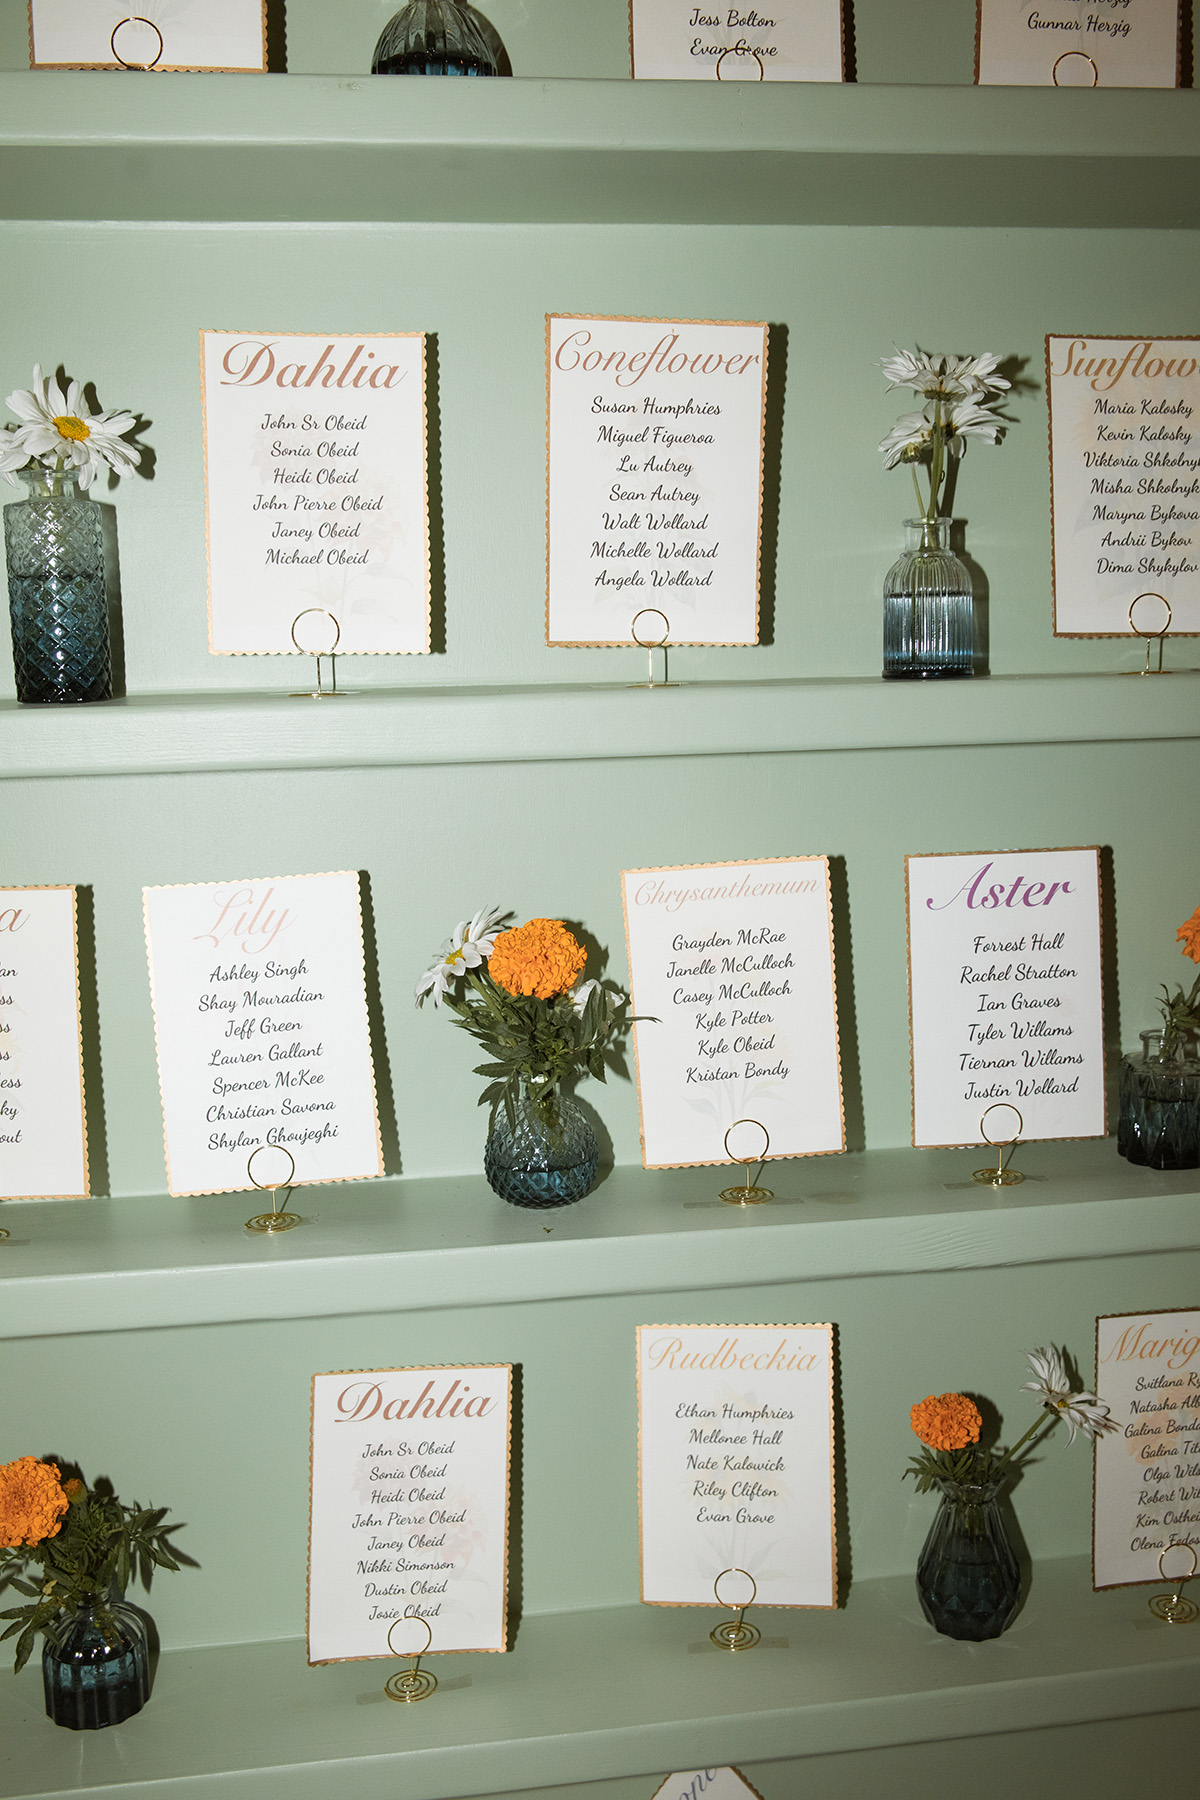 Jess Bolton
Evan Grove
Herzig
Gunnar Herzig
Dahlia
John Sr Obeid
Sonia Obeid
Heidi Obeid
John Pierre Obeid
Janey Obeid
Michael Obeid
Coneflower
Susan Humphries
Miguel Figueroa
Lu Autrey
Sean Autrey
Walt Wollard
Michelle Wollard
Angela Wollard
Sunflow
Maria Kalosky
Kevin Kalosky
Viktoria Shkolnyk
Misha Shkolnyk
Maryna Bykova
Andrii Bykov
Dima Shykylov
a
an
ss
ss
ss
less
ky
out
Lily
Ashley Singh
Shay Mouradian
Jeff Green
Lauren Gallant
Spencer McKee
Christian Savona
Shylan Ghoujeghi
Chrysanthemum
Grayden McRae
Janelle McCulloch
Casey McCulloch
Kyle Potter
Kyle Obeid
Kristan Bondy
Aster
Forrest Hall
Rachel Stratton
Ian Graves
Tyler Willams
Tiernan Willams
Justin Wollard
Dahlia
John Sr Obeid
Sonia Obeid
Heidi Obeid
John Pierre Obeid
Janey Obeid
Nikki Simonson
Dustin Obeid
Josie Obeid
Rudbeckia
Ethan Humphries
Mellonee Hall
Nate Kalowick
Riley Clifton
Evan Grove
Marig
Svitlana Ry
Natasha Alb
Galina Bonda
Galina Tit
Olga Wil
Robert Wil
Kim Osthei
Olena Fedos